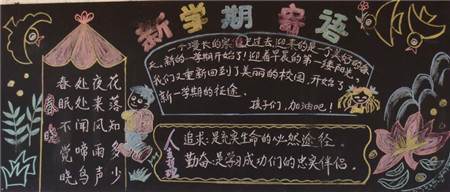 新学期寄语
一个漫长的寒假已过去迎来的是一个美好的春
天,新的一学期开始了!迎着早晨的第一缕阳光,
我们又重新回到了美丽的校园,开始了
新一学期的征途。
孩子们,加油吧!
春晓
春眠不觉晓
处处闻啼鸟
夜来风雨声
花落知多少
人生
追求:是充实生命的必然途径.
勤奋:是学习成功们的忠实伴侣.